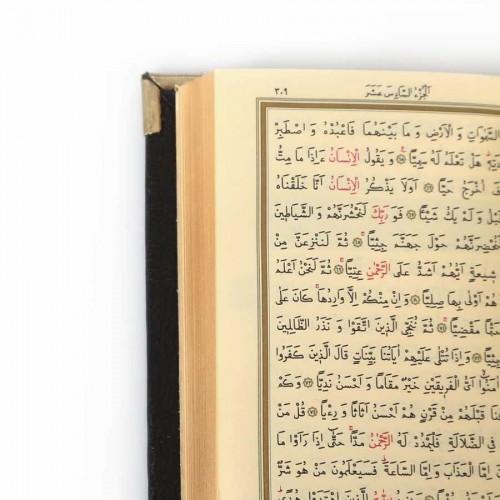 ٣٠٩ اَلْجُزْءُ السَّادِسَ عَشَرَ
السَّمٰوَاتِ وَ الْاَرْضِ وَ مَا بَيْنَهُمَا فَاعْبُدْهُ وَ اصْطَبِرْ
هَلْ تَعْلَمُ لَهُ سَمِيًّا ﴿٦٥﴾ وَ يَقُولُ الْاِنْسَانُ ءَاِذَا مَا مِتُّ
اُخْرَجُ حَيًّا ﴿٦٦﴾ اَوَلَا يَذْكُرُ الْاِنْسَانُ اَنَّا خَلَقْنَاهُ
وَ لَمْ يَكُ شَيْئًا ﴿٦٧﴾ فَوَ رَبِّكَ لَنَحْشُرَنَّهُمْ وَ الشَّيَاطِينَ
لَنُحْضِرَنَّهُمْ حَوْلَ جَهَنَّمَ جِثِيًّا ﴿٦٨﴾ ثُمَّ لَنَنْزِعَنَّ مِنْ
شِيعَةٍ اَيُّهُمْ اَشَدُّ عَلَى الرَّحْمٰنِ عِتِيًّا ﴿٦٩﴾ ثُمَّ لَنَحْنُ اَعْلَمُ
هُمْ اَوْلٰى بِهَا صِلِيًّا ﴿٧٠﴾ وَ اِنْ مِنْكُمْ اِلَّا وَارِدُهَا كَانَ عَلٰى
حَتْمًا مَقْضِيًّا ﴿٧١﴾ ثُمَّ نُنَجِّى الَّذِينَ اتَّقَوْا وَ نَذَرُ الظَّالِمِينَ
جِثِيًّا ﴿٧٢﴾ وَ اِذَا تُتْلٰى عَلَيْهِمْ اٰيَاتُنَا بَيِّنَاتٍ قَالَ الَّذِينَ كَفَرُوا
اٰمَنُوا اَىُّ الْفَرِيقَيْنِ خَيْرٌ مَقَامًا وَ اَحْسَنُ نَدِيًّا ﴿٧٣﴾ وَ كَمْ
قَبْلَهُمْ مِنْ قَرْنٍ هُمْ اَحْسَنُ اَثَاثًا وَ رِءْيًا ﴿٧٤﴾ قُلْ مَنْ
فِى الضَّلَالَةِ فَلْيَمْدُدْ لَهُ الرَّحْمٰنُ مَدًّا حَتّٰى اِذَا رَاَوْا مَا
اِمَّا الْعَذَابَ وَ اِمَّا السَّاعَةَ فَسَيَعْلَمُونَ مَنْ هُوَ شَرٌّ